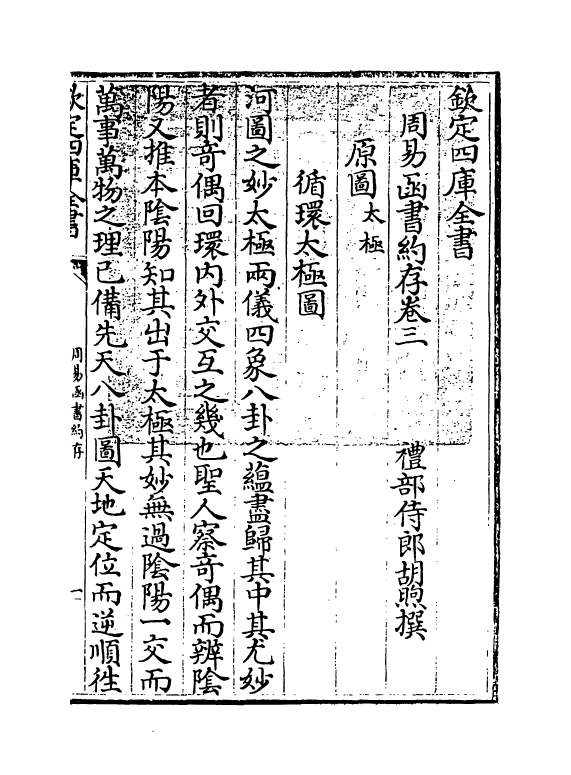 欽定四庫全書
周易函書約存卷三
禮部侍郎胡煦撰
原圖太極
循環太極圖
河圖之妙太極兩儀四象八卦之蘊盡歸其中其尤妙
者則奇偶回環内外交互之幾也聖人察奇偶而辨陰
陽又推本陰陽知其出于太極其妙無過陰陽一交而
萬事萬物之理已備先天八卦圖天地定位而逆順徃
欽定四庫全書
周易函書約存
一